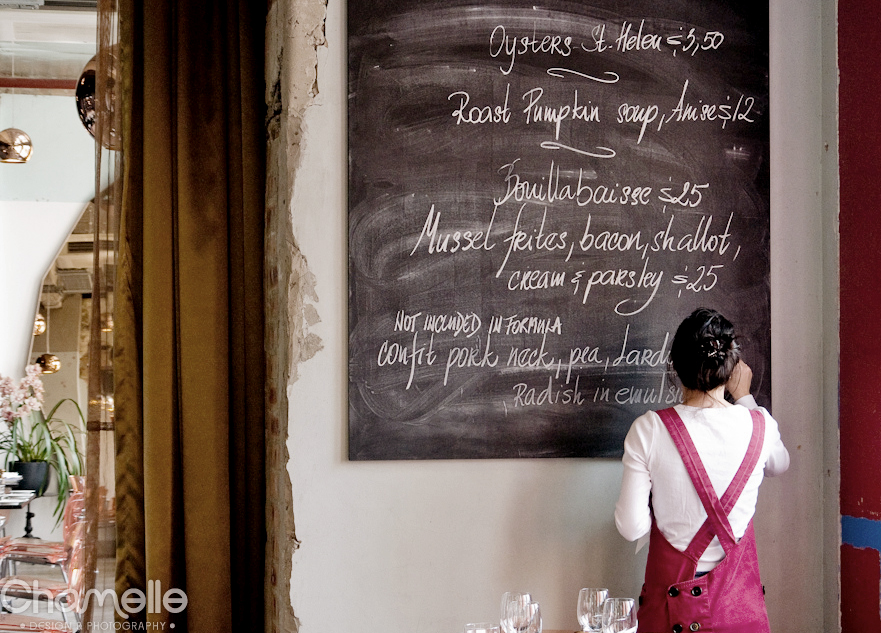 Oysters St. Helen $3,50
Roast Pumpkin soup, Anise $12
Bouillabaisse $25
Mussel frites, bacon, shallot,
cream & parsley $25
NOT INCLUDED IN FORMULA
Confit pork neck, pea, Lard
Radish in emuls
Chamelle
• DESIGN & PHOTOGRAPHY •